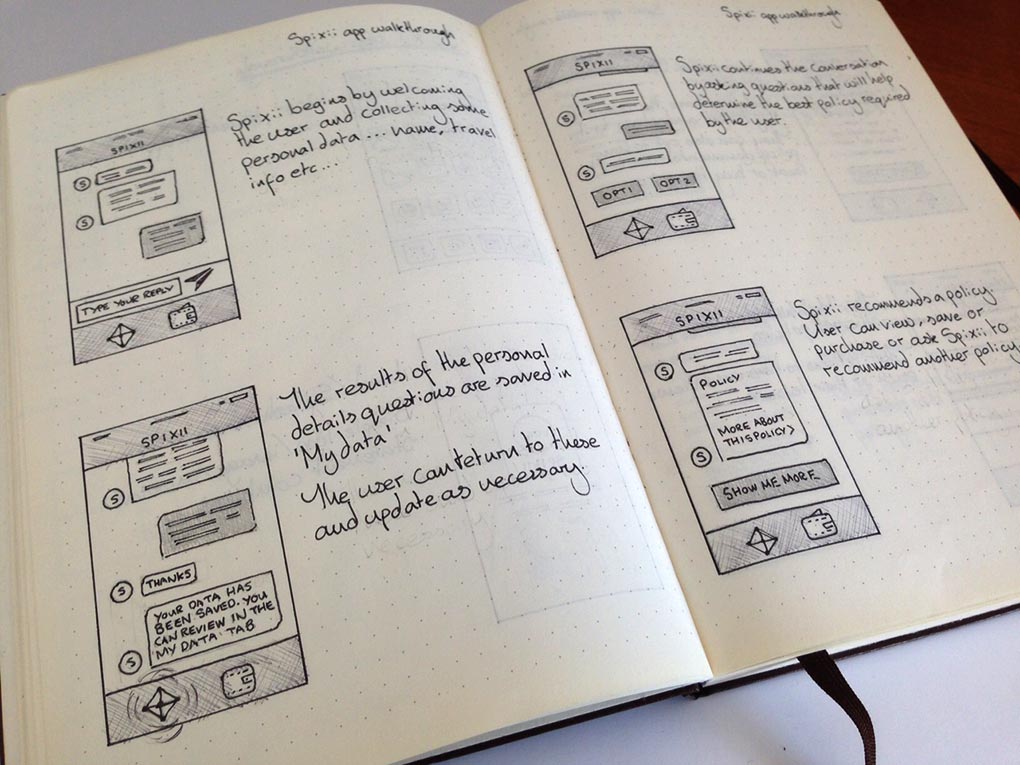 Spixii app walkthrough
SPIXII
S
S
TYPE YOUR REPLY
Spixii begins by welcoming
the user and collecting some
personal data ... name, travel
info etc...
SPIXII
S
S
THANKS
YOUR DATA HAS
BEEN SAVED. YOU
CAN REVIEW IN THE
MY DATA TAB
S
The results of the personal
details questions are saved in
'My data'
The user can return to these
and update as necessary.
Spixii app walkthrough
SPIXII
S
S
OPT 1 OPT 2
Spixii continues the conversation
by asking questions that will help
determine the best policy required
by the user.
SPIXII
S
POLICY
MORE ABOUT
THIS POLICY >
S
SHOW ME MORE
Spixii recommends a policy.
User can view, save or
purchase or ask Spixii to
recommend another policy.